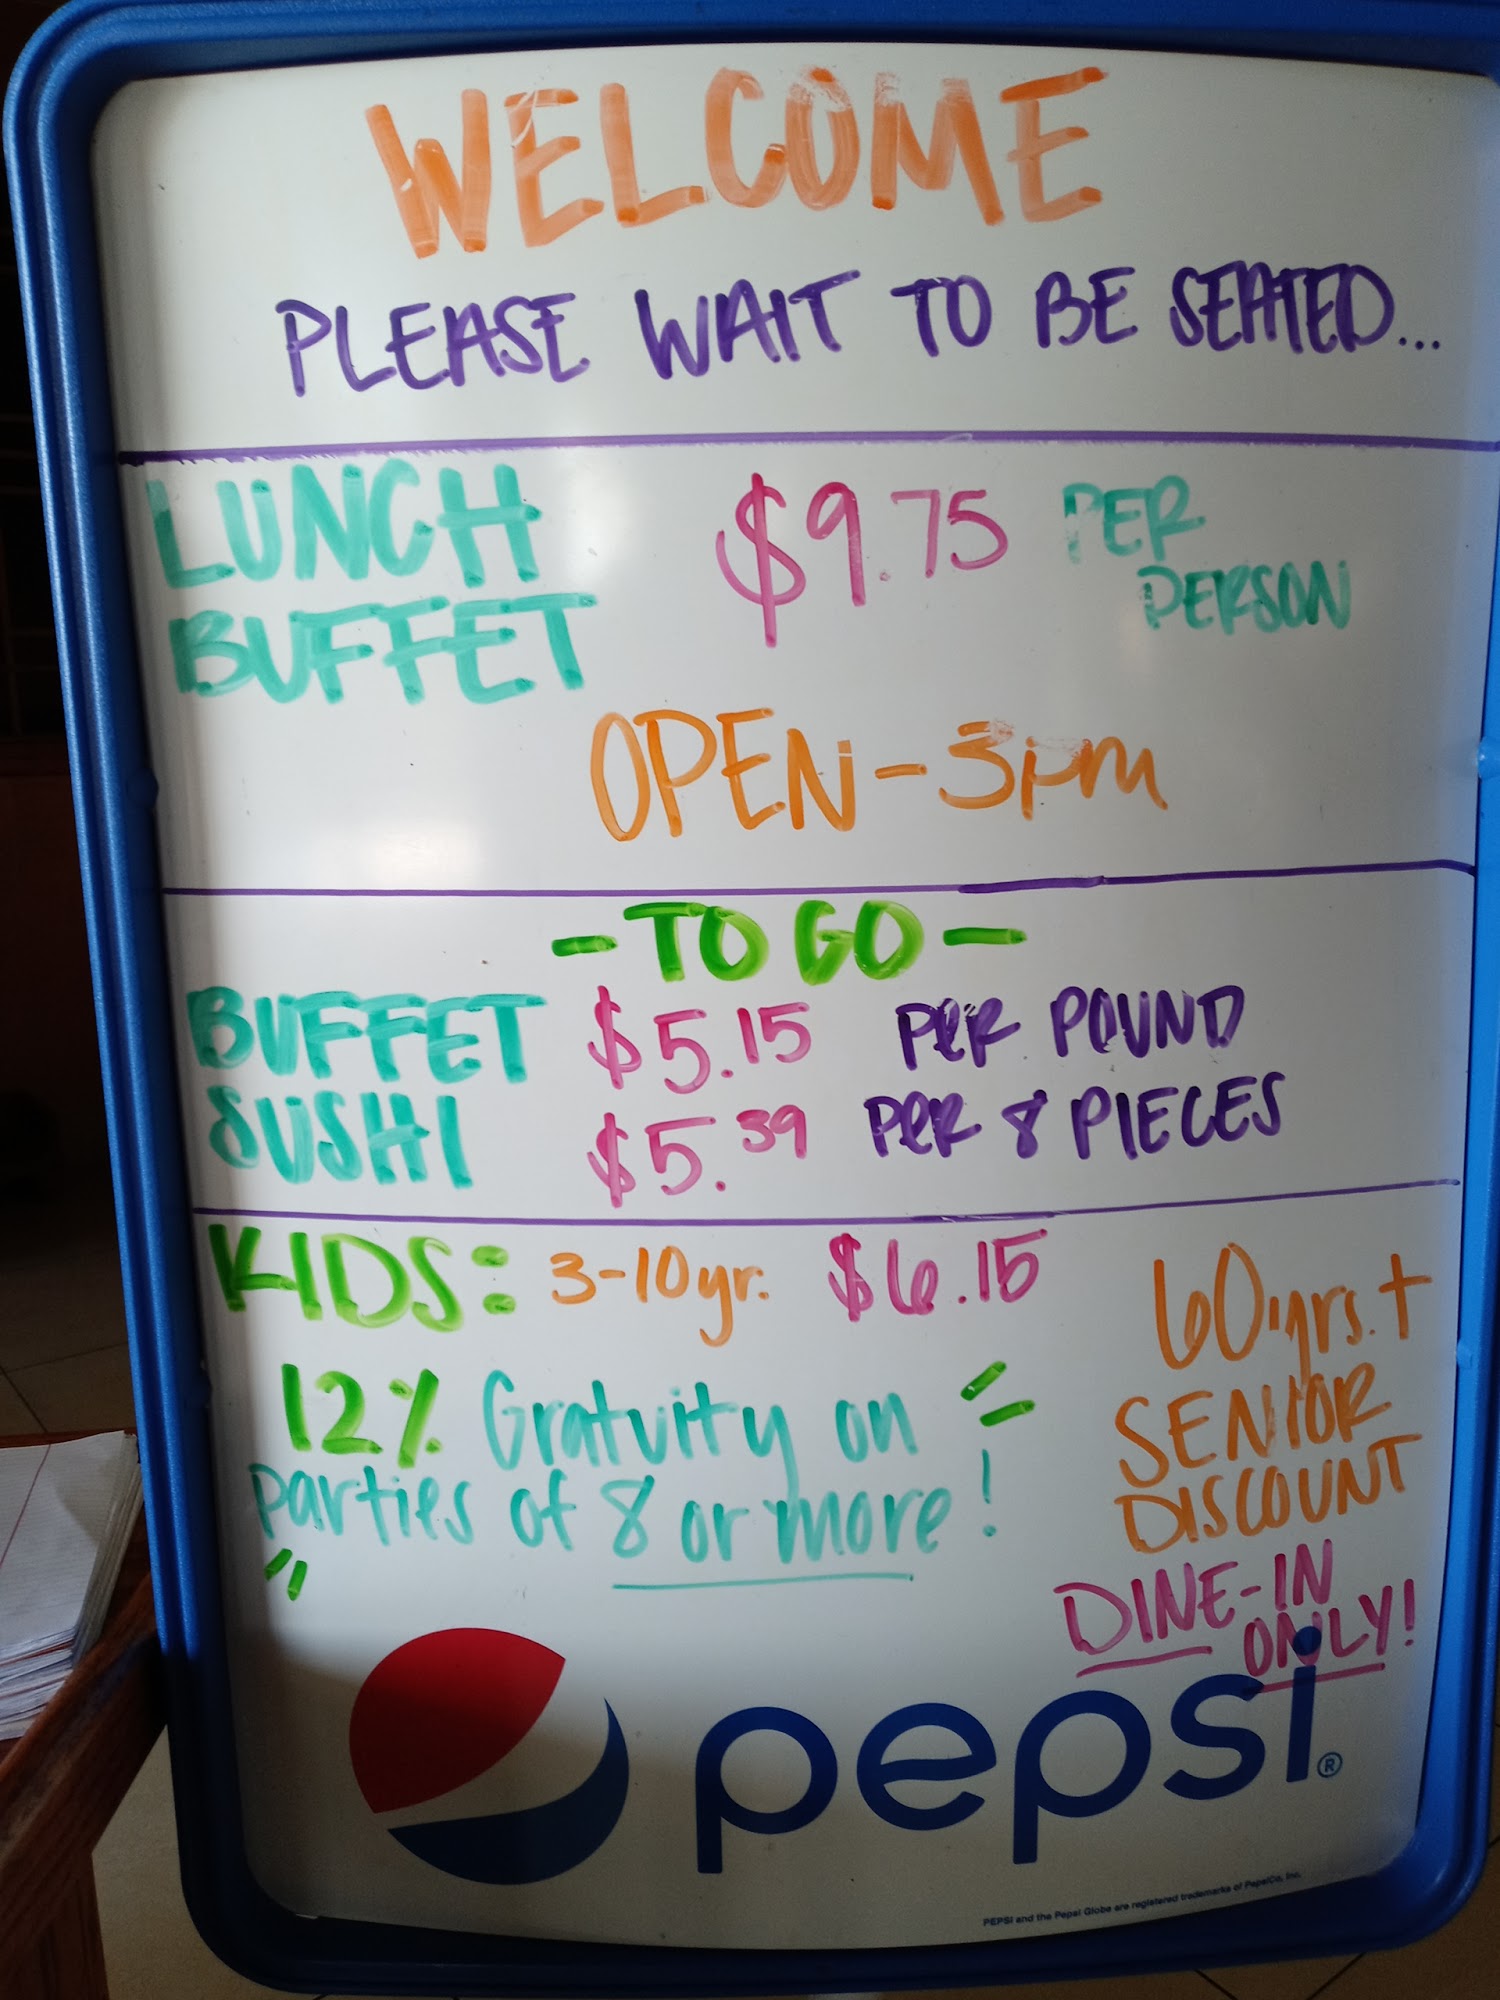 WELCOME
PLEASE WAIT TO BE SEATED...
LUNCH BUFFET $9.75 PER PERSON
OPEN-3pm
-TO GO-
BUFFET $5.15 PER POUND
SUSHI $5.39 PER 8 PIECES
KIDS: 3-10yr. $6.15
12% Gratuity on
parties of 8 or more!
60yrs.+
SENIOR
DISCOUNT
DINE-IN
ONLY!
pepsi®
PEPSI and the Pepsi Globe are registered trademarks of PepsiCo, Inc.